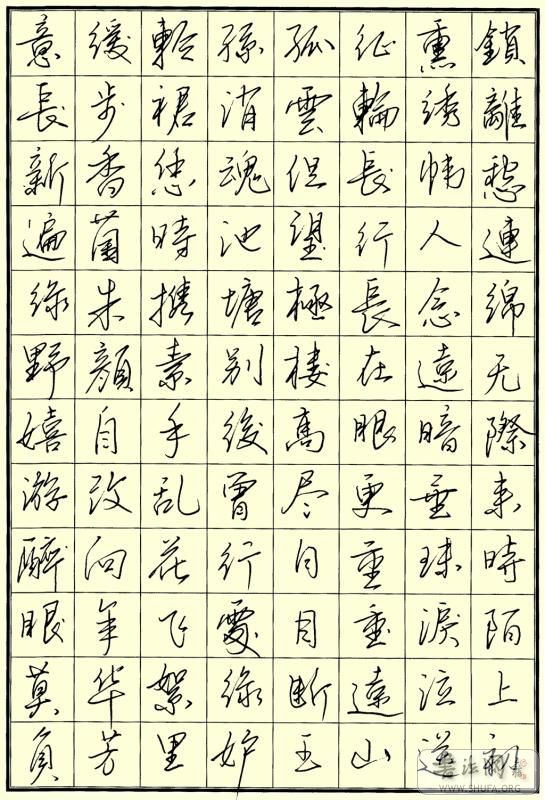 鎖離愁連綿无際來時陌上初
熏綉幃人念遠暗垂珠淚泣送
征輪長行長在眼更重重遠山
孤雲但望極樓高尽日目断王
孫消魂池塘别後曾行處綠妒
輕裙恁時攜素手乱花飞絮里
緩步香茵朱顏自改向年华芳
意長新遍綠野嬉游醉眼莫負
WWW.SHUFA.ORG